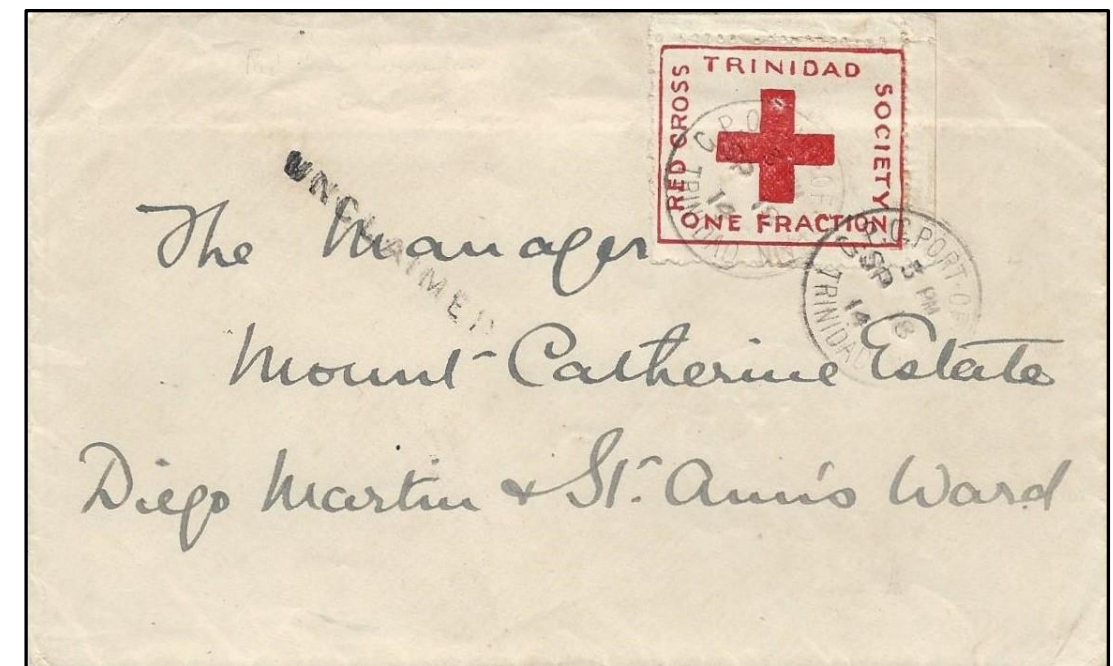 TRINIDAD
RED CROSS
SOCIETY
ONE FRACTION
G.P.O. PORT OF
5 PM
SP 18
14
TRINIDAD
UNCLAIMED
The Manager
Mount Catherine Estate
Diego Martin & St. Ann's Ward